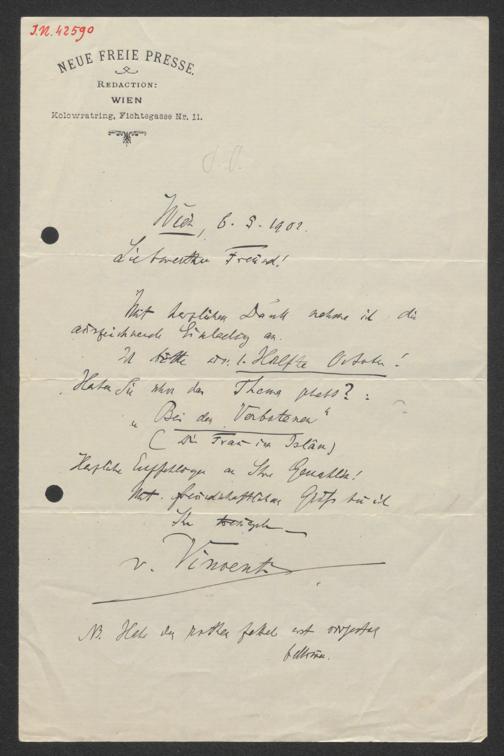 J.N. 42590
NEUE FREIE PRESSE.
REDACTION:
WIEN
Kolowratring, Fichtegasse Nr. 11.
Wien, 6. 9. 1902.
Liebwerther Freund!
Mit herzlichem Dank nehme ich die
auszeichnende Einladung an.
Ich bitte um 1. Hälfte October!
Haben Sie schon das Thema ?:
"Bei den Verbotenen"
(Die Frau im Islâm)
Herzliche Empfehlungen an Ihre Gemahlin!
Mit freundschaftlichem Gruß bin ich
Ihr
v. Vincenti
NB. Habe den erst vorgestern
bekommen.